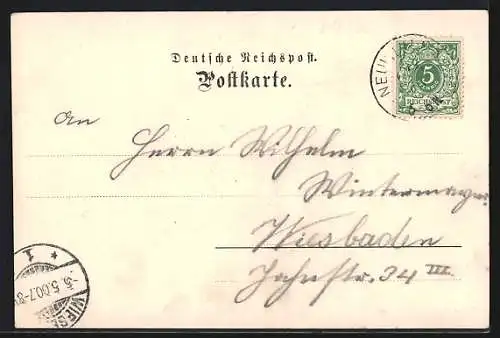 Deutsche Reichspost.
Postkarte.
5
REICHSPOST
An
Herrn Wilhelm
Wintermayer
Wiesbaden
Jahnstr. 34 III.
* 1
5.00.7-8